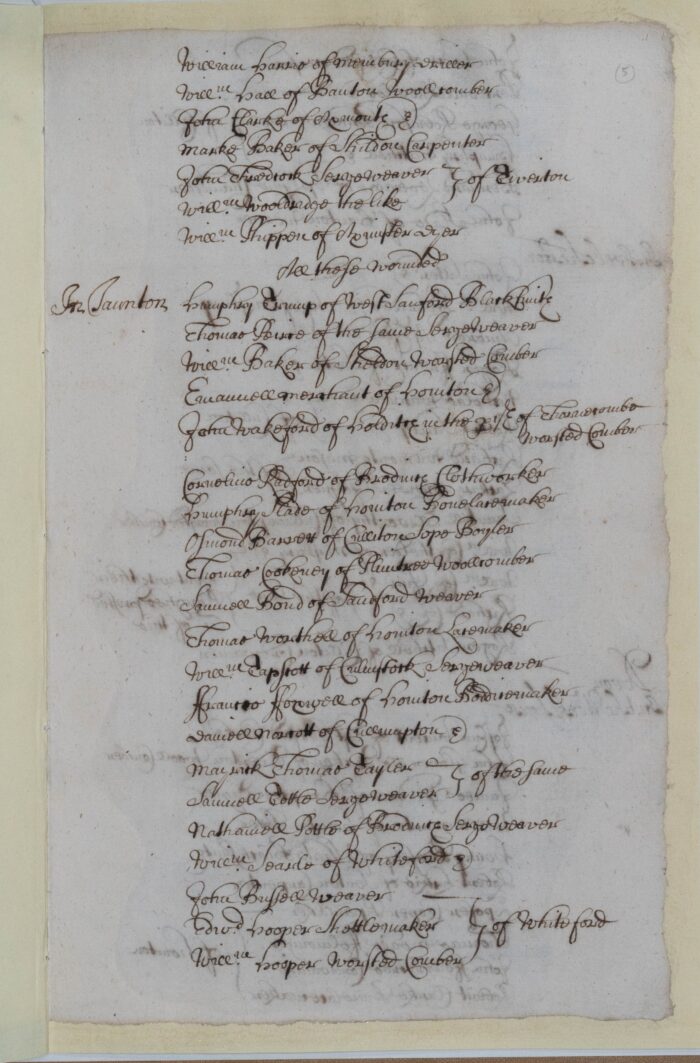 (5)
William Harris of Membury Driller
Will:m Hall of Banton Woollcomber
John Clarke of Axmouth
Marke Baker of Shildon Carpenter
John Thredcock Sergeweaver } of Tiverton
Will:m Wooldridge the like
Will:m Phippen of Axmister Dyer
All these wounded
In Taunton Humphry Trump of West Sanford Blacksmith
Thomas Peirce of the same Serge Weaver
Will:m Baker of Sheldon Worsted Comber
Emanuell Merchant of Honiton
John Wakeford of Holditch in the p:sh of Thornecombe
Worsted Comber
Cornelius Radford of Brodnich Clothworker
Humphry Slade of Honiton Bonelacemaker
Osmond Barrett of Culliton Sope Boyler
Thomas Cockeney of Plimtree Woollcomber
Samuell Bond of Sandford Weaver
Thomas Worthell of Honiton Lacemaker
Will:m Tapscott of Culmstock Sergeweaver
Francis Foxwell of Honiton Bodicemaker
Daniell Norcott of Cullumpton
Maurick Thomas Tayler } of the same
Samuell Tottle Serge Weaver
Nathaniell Pottle of Brodnich Serge Weaver
Will:m Searle of Whiteford
John Bussell Weaver
Edw:d Hooper Shottlemaker } of Whiteford
Will:m Hooper Worsted Comber